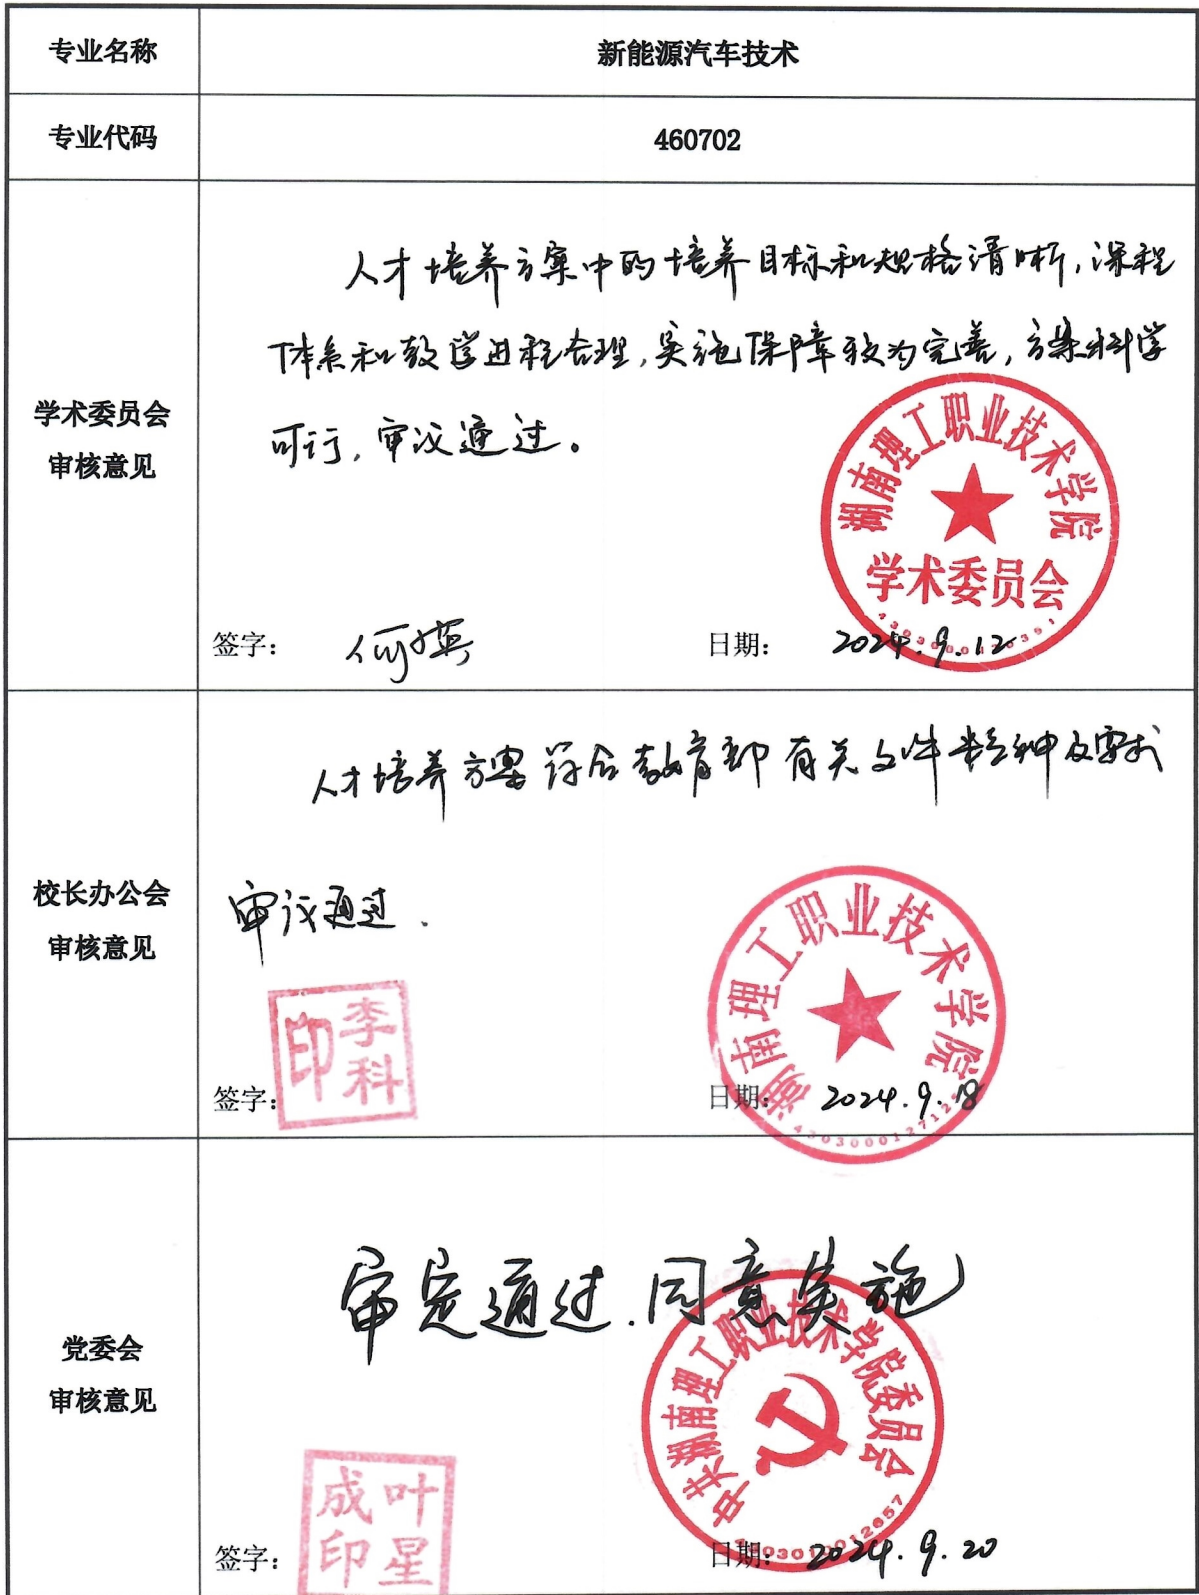 专业名称
新能源汽车技术
专业代码
460702
学术委员会
审核意见
人才培养方案中的培养目标和规格清晰,课程
体系和教学进程合理,实施保障较为完善,方案科学
可行,审议通过。
湖南理工职业技术学院
学术委员会
签字: 何瑛
日期: 2024.9.12
校长办公会
审核意见
人才培养方案符合教育部有关文件精神及要求
审议通过.
湖南理工职业技术学院
李科印
签字:
日期: 2024.9.18
党委会
审核意见
审定通过.同意实施
中共湖南理工职业技术学院委员会
叶星成印
签字:
日期: 2024.9.20